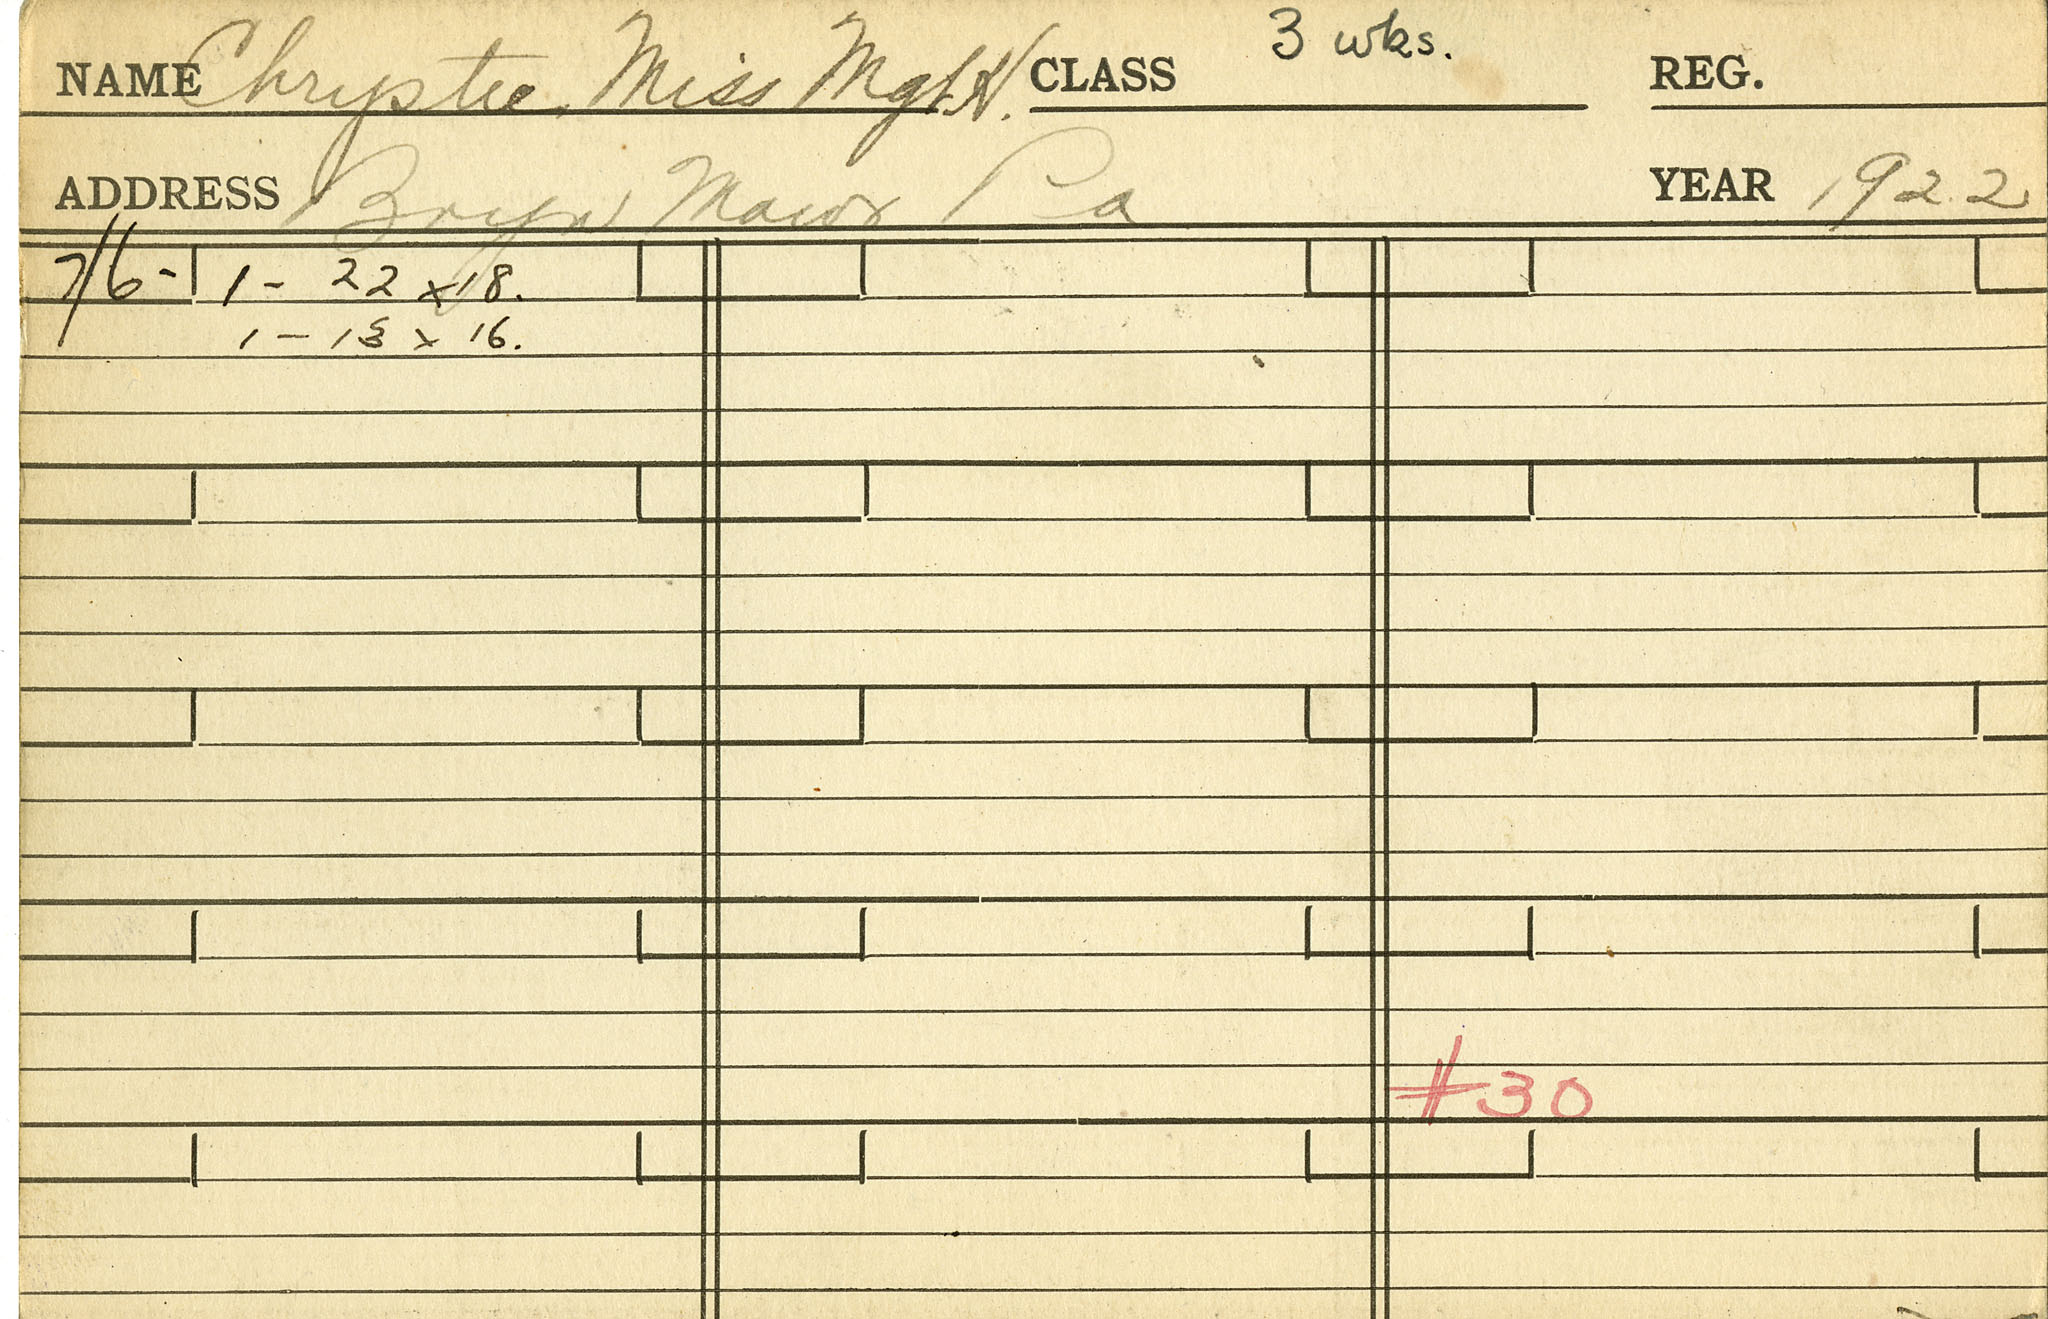 3 wks.
NAME Chrystie, Miss Mgt. H. CLASS REG.
ADDRESS Bryn Mawr Pa YEAR 1922
7/6- 1 - 22 x 18.
1 - 18 x 16.
#30